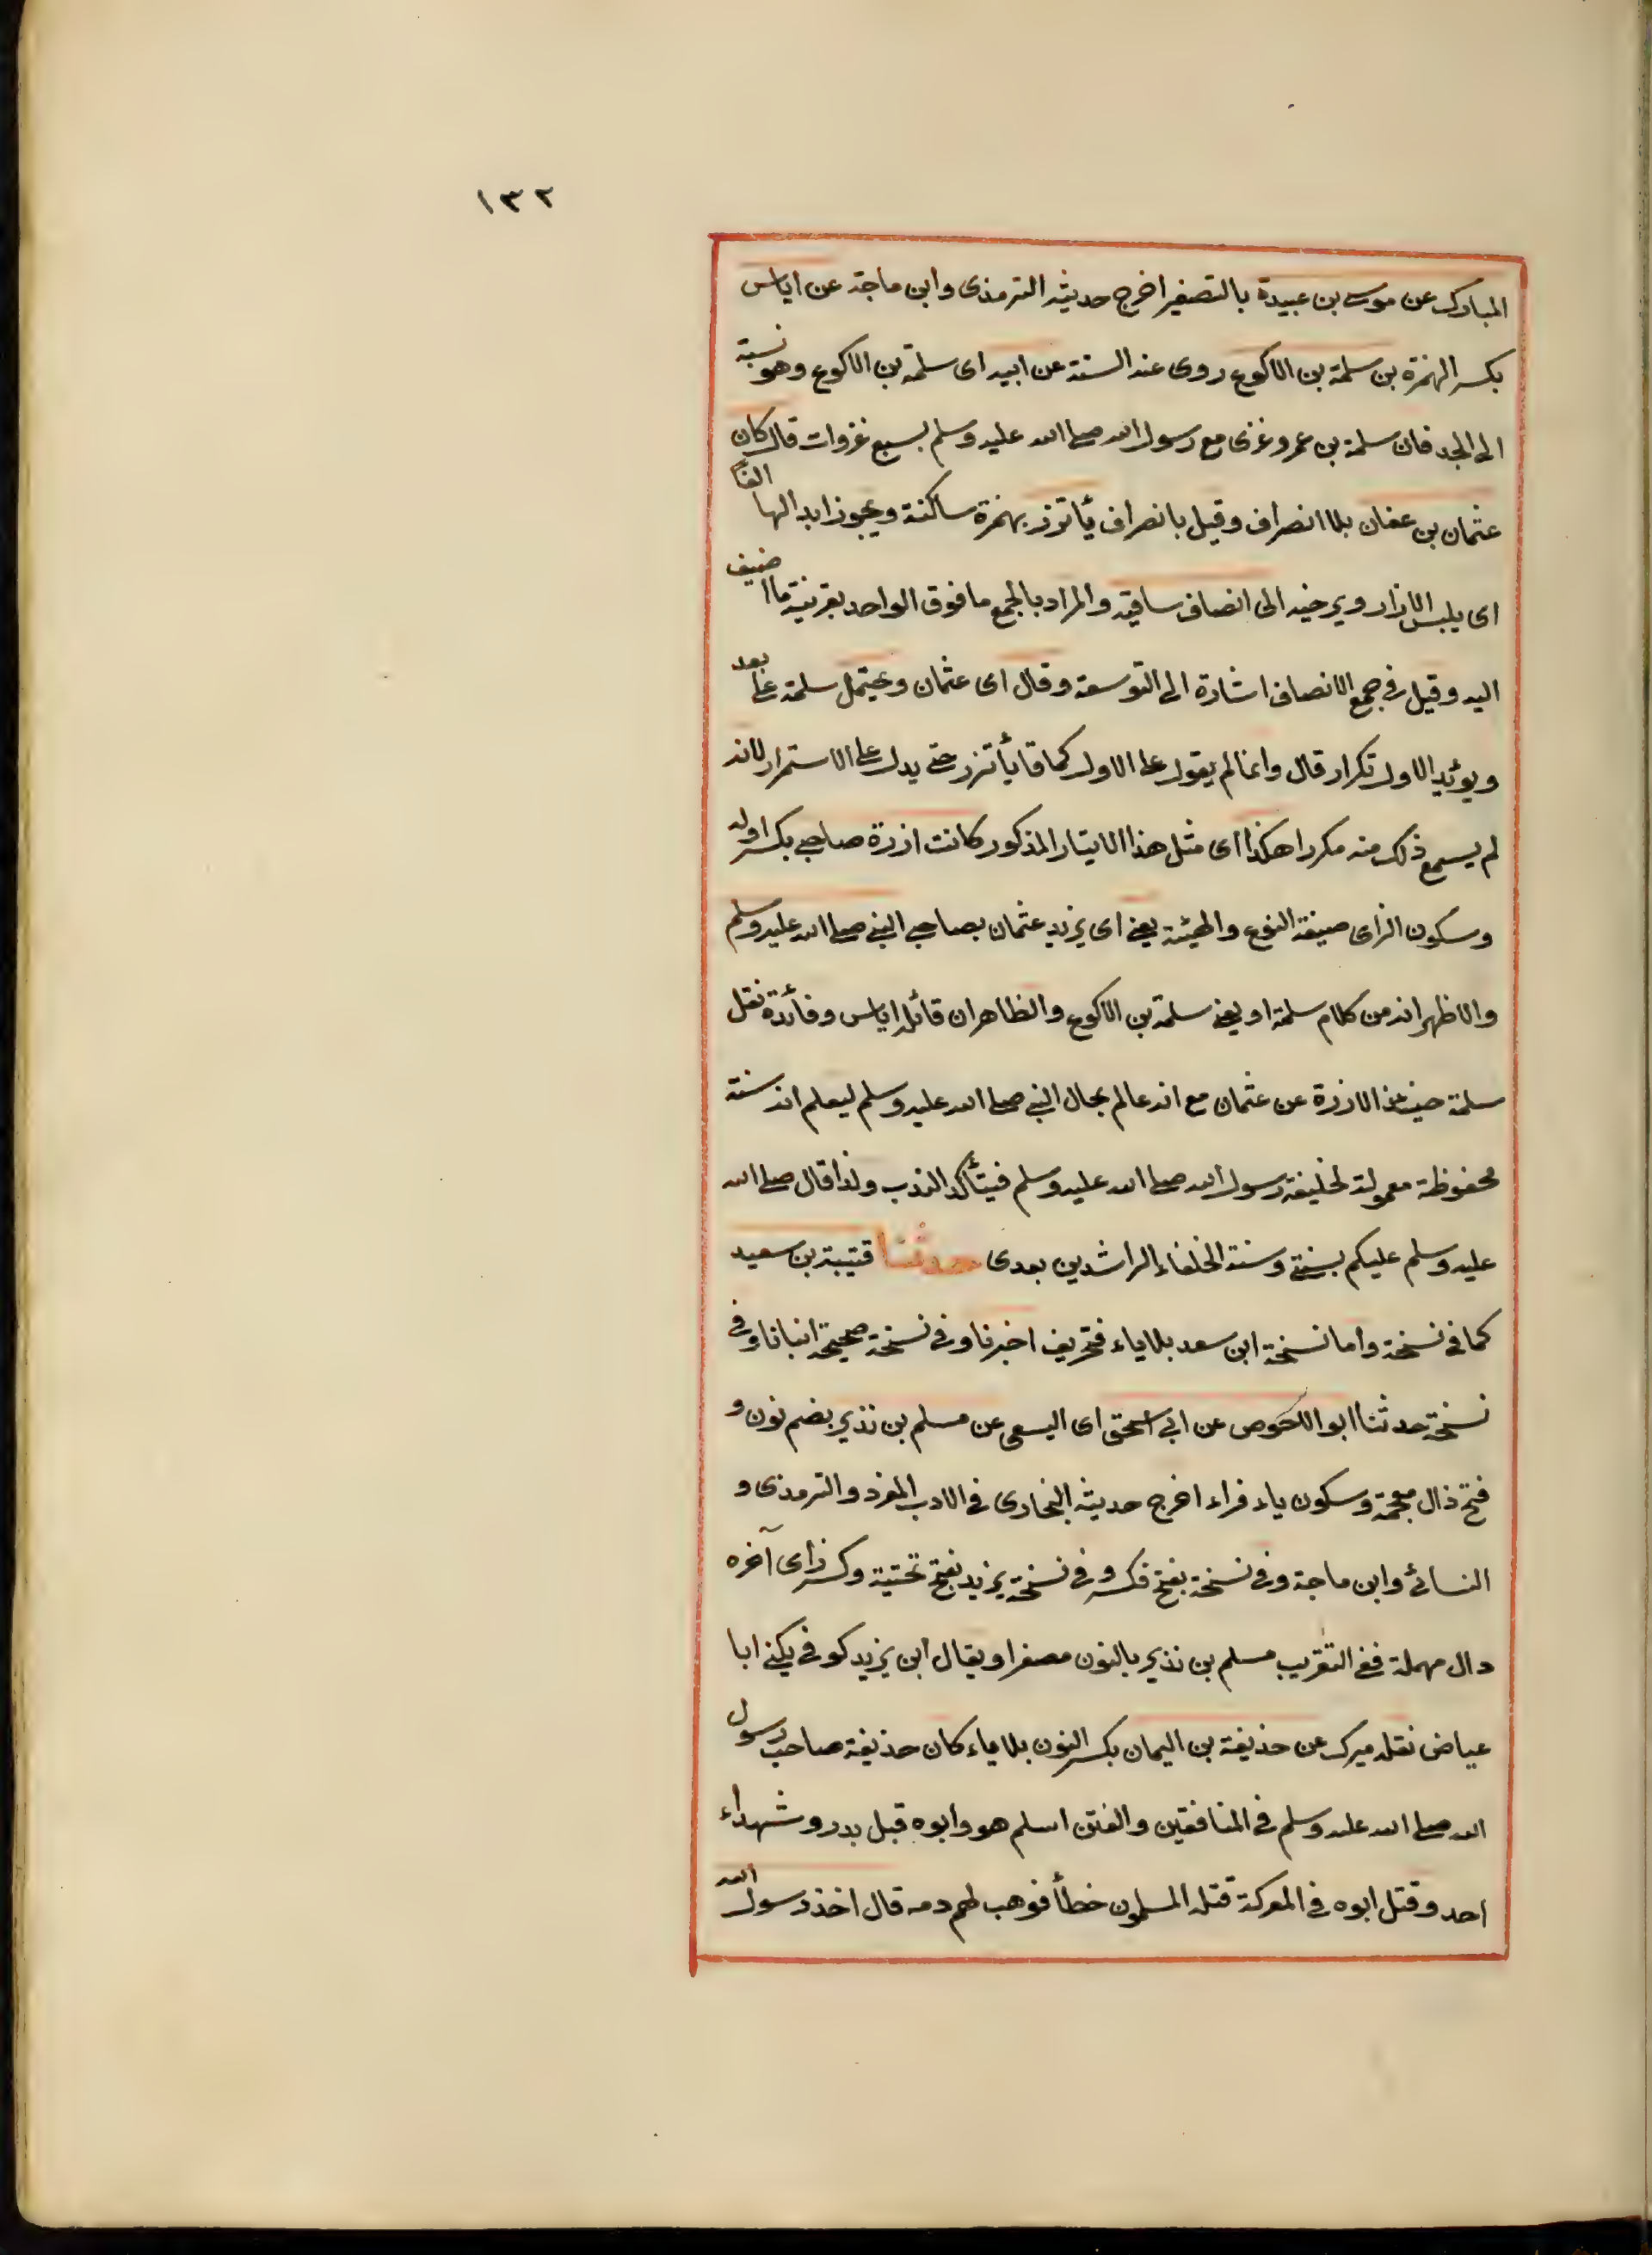 ١٣٢
المبارك عن موسى بن عبيدة بالتصغير اخرج حديثه الترمذى وابن ماجة عن اياس
بكسر الهمزة بن سلمة بن الاكوع روى عنه الستة عن ابيه اى سلمة بن الاكوع وهو نسبة
الى الجد فان سلمة بن عمرو غزى مع رسول الله صلى الله عليه وسلم سبع غزوات قال كان
عثمان بن عفان بلا انصراف وقيل بانصراف يأتزر بهمزة ساكنة ويجوز ابدالها الفا
اى يلبس الازار ويرخيه الى انصاف ساقيه والمراد بالجمع ما فوق الواحد بقرينة ما اضيف
اليه وقيل فى جمع الانصاف اشارة الى التوسعة وقال اى عثمان ويحتمل سلمة على بعد
ويؤيد الاول تكرار قال وانما لم يقول على الاول كما قا يأتزر حتى يدل على الاستمرار لانه
لم يسمع ذلك منه مكررا هكذا اى مثل هذا الايتزار المذكور كانت ازرة صاحبى بكسر اوله
وسكون الزاى صيغة النوع والهيئة يعنى اى يريد عثمان بصاحبى النبى صلى الله عليه وسلم
والاظهر انه من كلام سلمة او يعنى سلمة بن الاكوع والظاهر ان قائله اياس وفائدة نقل
سلمة حينئذ الازرة عن عثمان مع انه عالم بحال النبى صلى الله عليه وسلم ليعلم انه سنة
محفوظة معمولة لخليفة رسول الله صلى الله عليه وسلم فيتأكد الندب ولذا قال صلى الله
عليه وسلم عليكم بسنتى وسنة الخلفاء الراشدين بعدى حدثنا قتيبة بن سعيد
كما فى نسخة واما نسخة ابن سعد بلا ياء فتحريف اخبرنا وفى نسخة صحيحة انبانا وفى
نسخة حدثنا ابو الاحوص عن ابى اسحق اى السبيعى عن مسلم بن نذير بضم نون و
فتح ذال معجمة وسكون ياء فراء اخرج حديثه البخارى فى الادب المفرد والترمذى و
النسائى وابن ماجة وفى نسخة بفتح فكسر وفى نسخة يزيد بفتح تحتية وكسر زاى آخره
دال مهملة ففى التقريب مسلم بن نذير بالنون مصغرا ويقال ابن يزيد كوفى يكنى ابا
عياض نقله ميرك عن حذيفة بن اليمان بكسر النون بلا ياء كان حذيفة صاحب رسول
الله صلى الله عليه وسلم فى المنافقين والفتن اسلم هو وابوه قبل بدر وشهداء
احد وقتل ابوه فى المعركة قتله المسلمون خطأ فوهب لهم دمه قال اخذ رسول الله